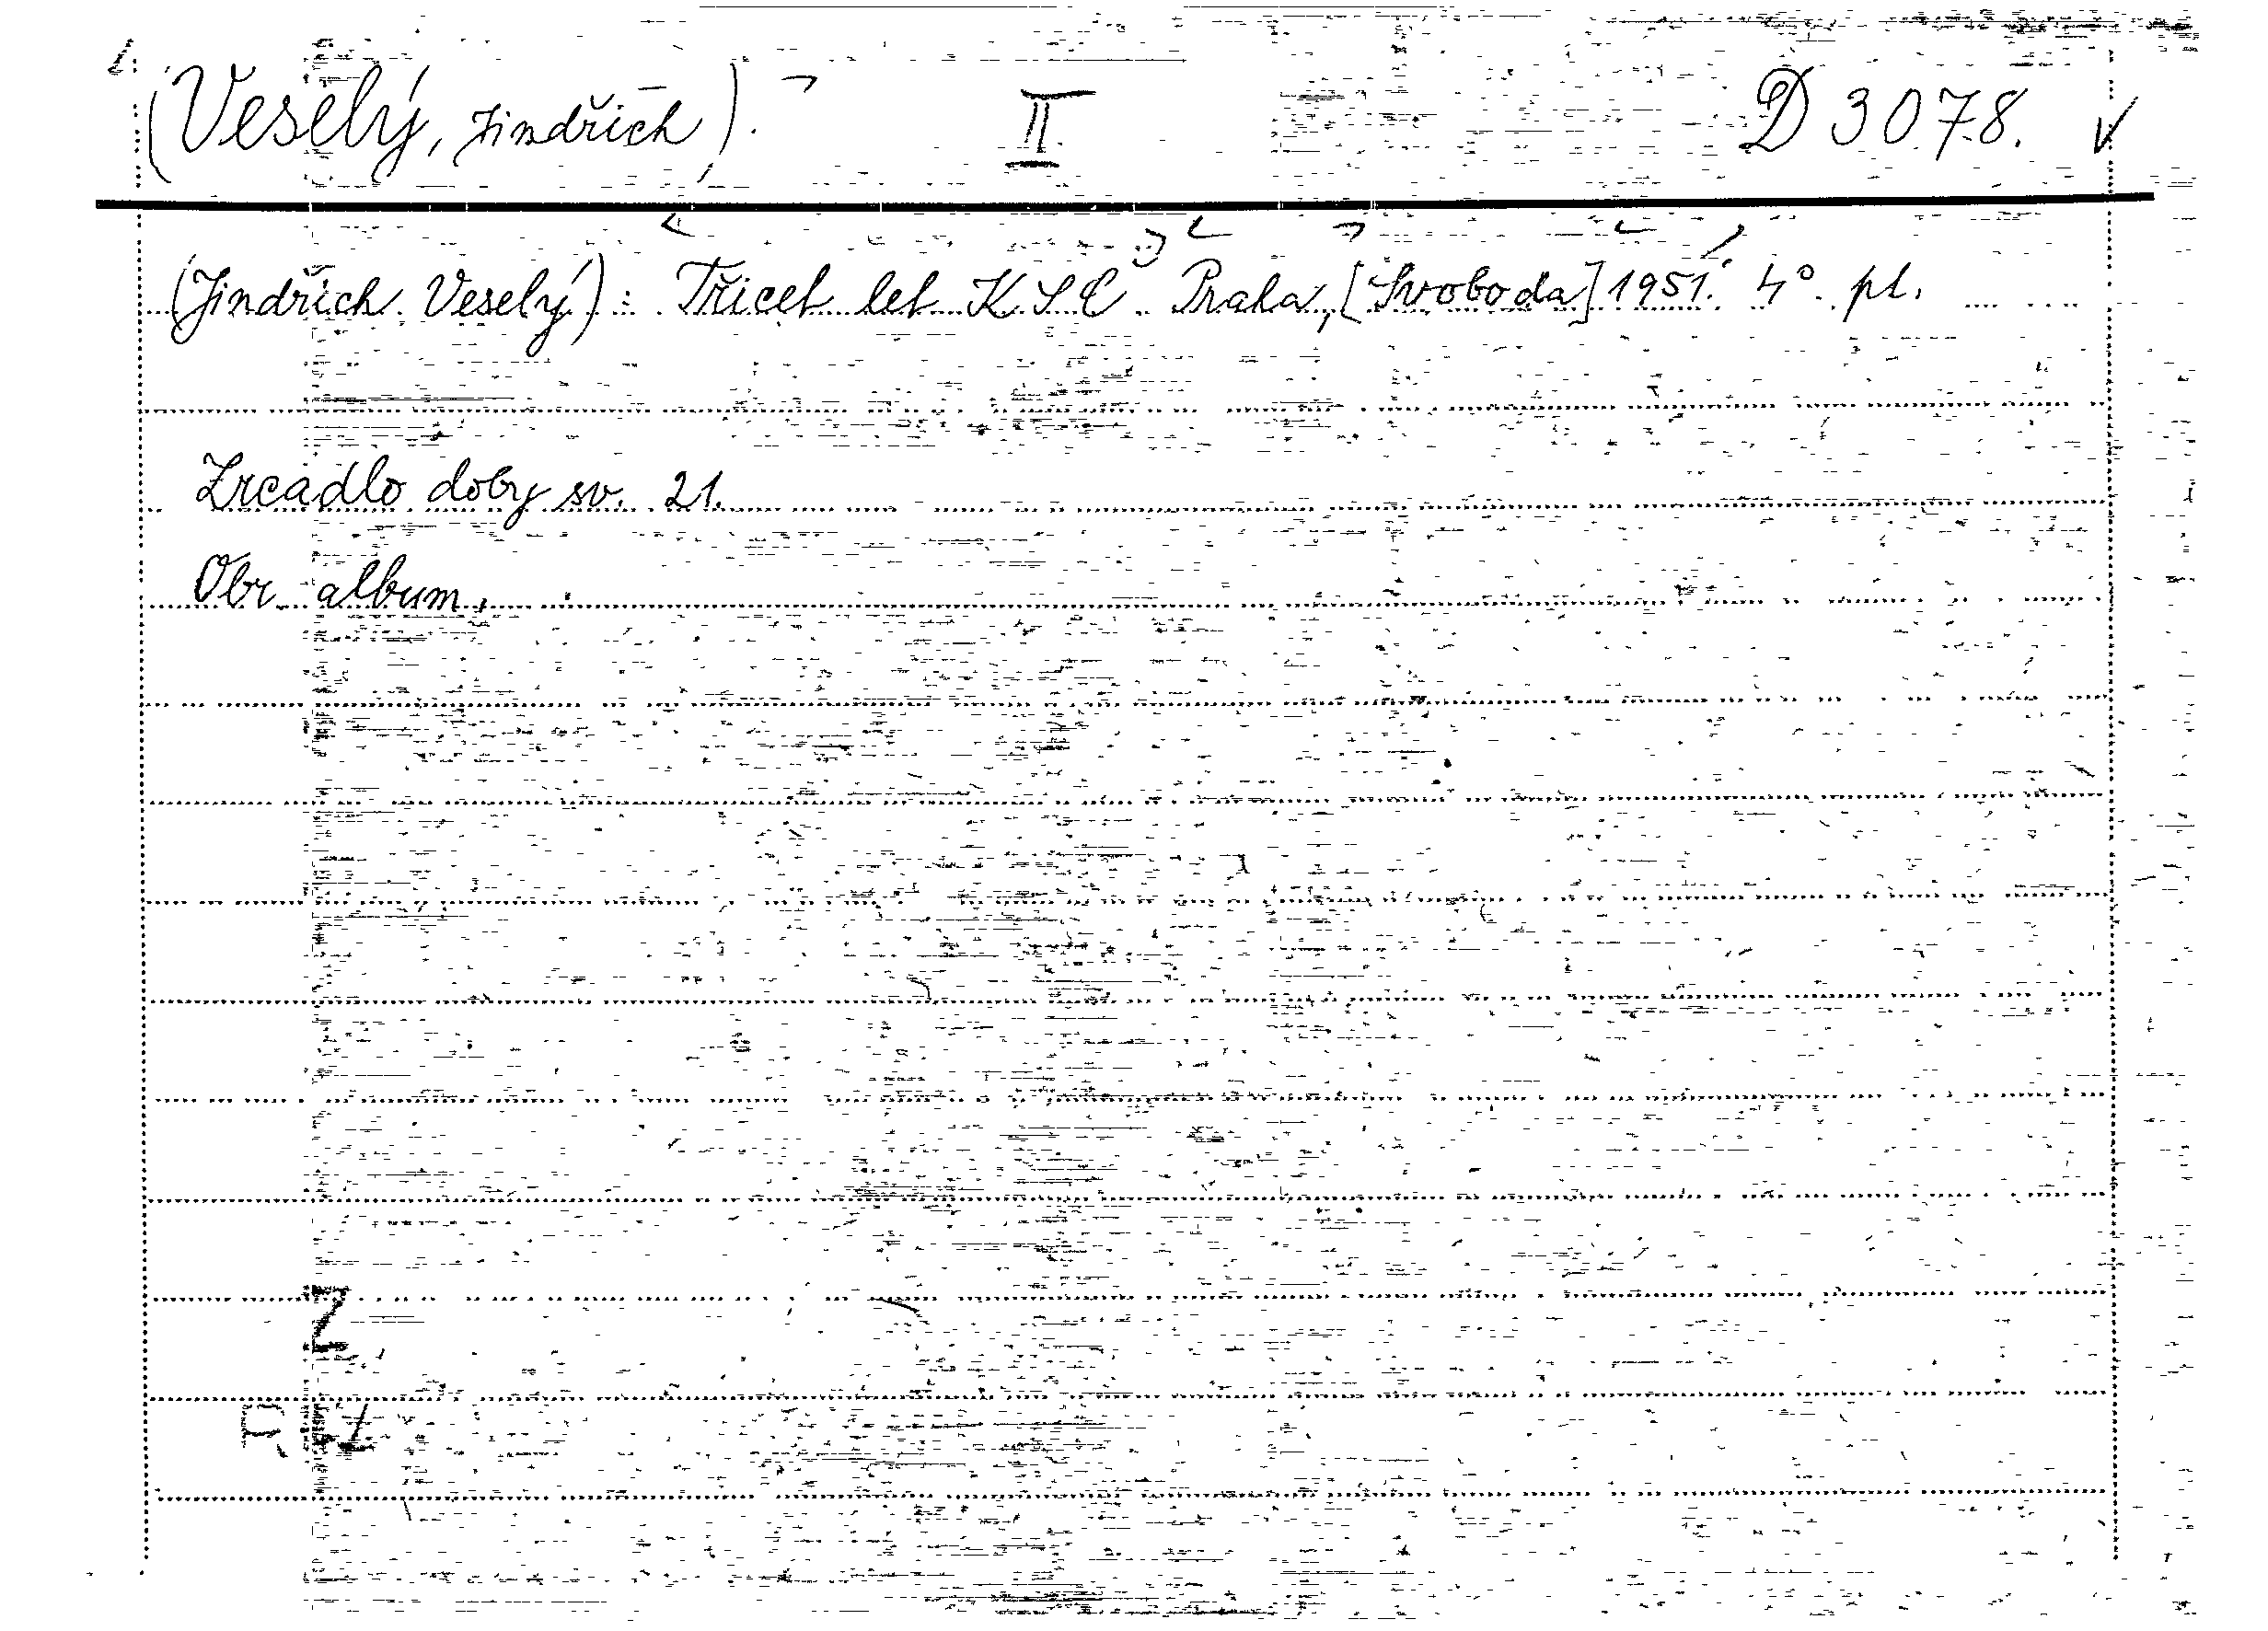 (Veselý, Jindřich). II D 3078.
(Jindřich Veselý): Třicet let KSČ. Praha, [Svoboda] 1951. 4°. pl.
Zrcadlo doby sv. 21.
Obr. album.
Z